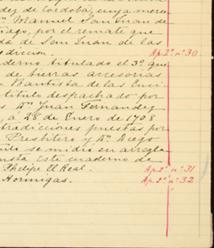 dez de Córdoba, cuya merce
Dn Manuel San Juan de
tiago, por el remate que
dá de San Juan de las
diccion. Ap. 2º nº 30
aderno titulado el 3º que
de tierras accesorias
Bautista de las Enci
titulo despachado por
Dn Juan Fernandez
á 28 de Enero de 1708
tradicciones puestas por
Presbitero y Dn Diego
se midio en arregla
nsta este cuaderno de
Phelipe El Real. Ap. 2º nº 31
Hormigas. Ap. 2º nº 32